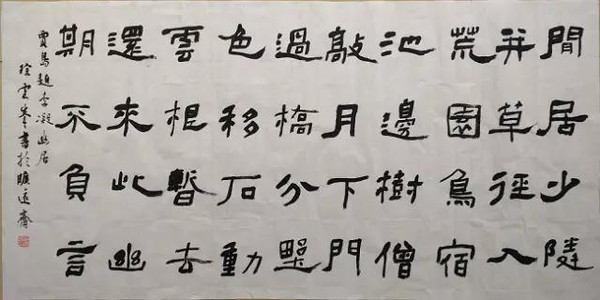 閒居少隣
并草徑入
荒園鳥宿
池邊樹僧
敲月下門
過橋分墅
色移石動
雲根暫去
還來此幽
期不負言
賈島題李凝幽居
雲岑書於曠遠齋